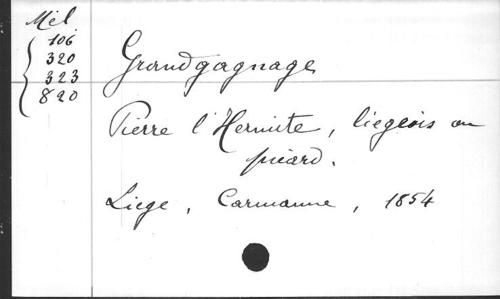 Mél
106
320
323
820
Grandgagnage
Pierre l'Hermite, liegeois ou
picard.
Liege, Carmanne, 1854